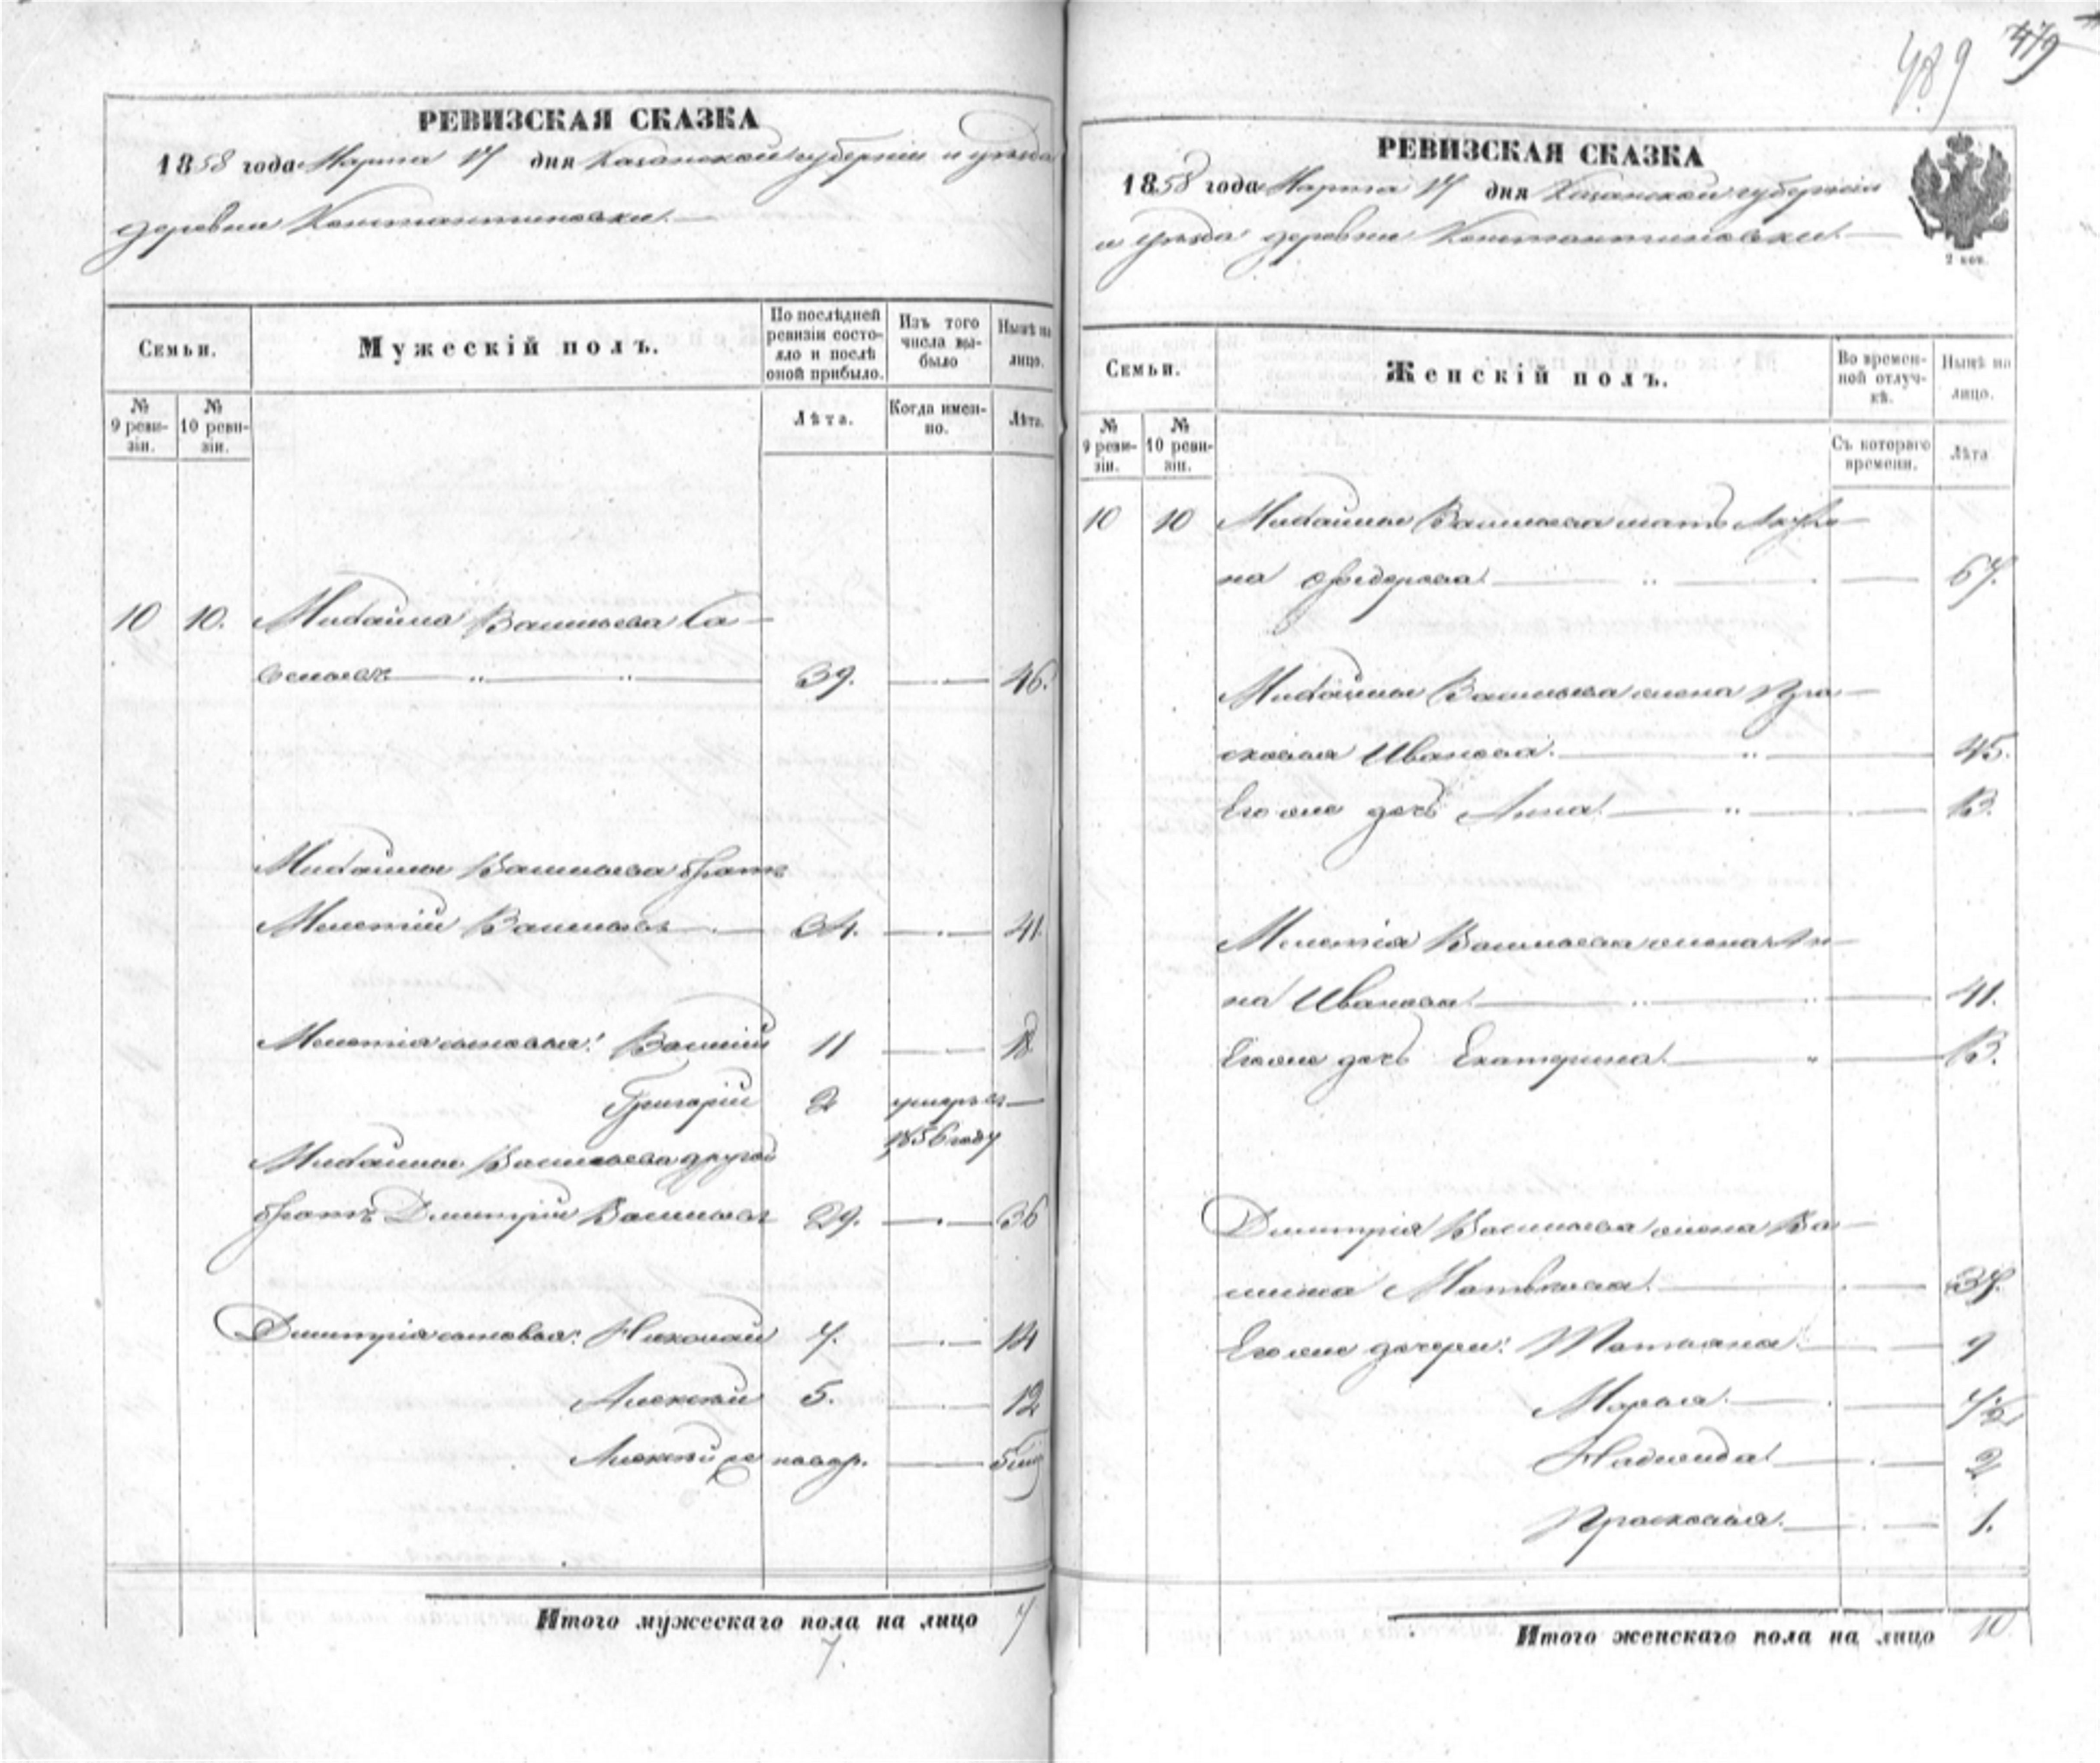 489 479
РЕВИЗСКАЯ СКАЗКА
1858 года Марта 17 дня Казанской губерніи и уѣзда
деревни Константиновки.
Семьи.
Мужескій полъ.
По послѣдней ревизіи состояло и послѣ оной прибыло.
Изъ того числа выбыло
Нынѣ на лицо.
№ 9 ревизіи.
№ 10 ревизіи.
Лѣта.
Когда именно.
Лѣта.
10 10. Михайла Васильевъ Са-
39. 46.
Михайлы Васильева братъ
Мелетій Васильевъ 34. 41.
Мелетія сыновья: Василій 11 18
Григорій 2 умеръ въ
1856 году
Михайлы Васильева другой
братъ Дмитрій Васильевъ 29. 36
Дмитрія сыновья: Николай 7. 14
Алексѣй 5. 12
Алексѣй новор. 5
Итого мужескаго пола на лицо 7
7.
РЕВИЗСКАЯ СКАЗКА
1858 года Марта 17 дня Казанской губерніи
и уѣзда деревни Константиновки.
2 коп.
Семьи.
Женскій полъ.
Во временной отлучкѣ.
Нынѣ на лицо.
№ 9 ревизіи.
№ 10 ревизіи.
Съ котораго времени.
Лѣта
10 10 Михайлы Васильева мать
на Федорова. 67.
Михайлы Васильева жена Пра-
сковья Иванова. 45.
Его же дочь Анна. 13.
Мелетія Васильева жена Ан-
на Иванова. 41.
Его же дочь Екатерина. 13.
Дмитрія Васильева жена Ва-
силиса Матвѣева. 37.
Его же дочери: Татьяна. 9
Марья.
Надежда. 2
Прасковья. 1.
Итого женскаго пола на лицо 10.